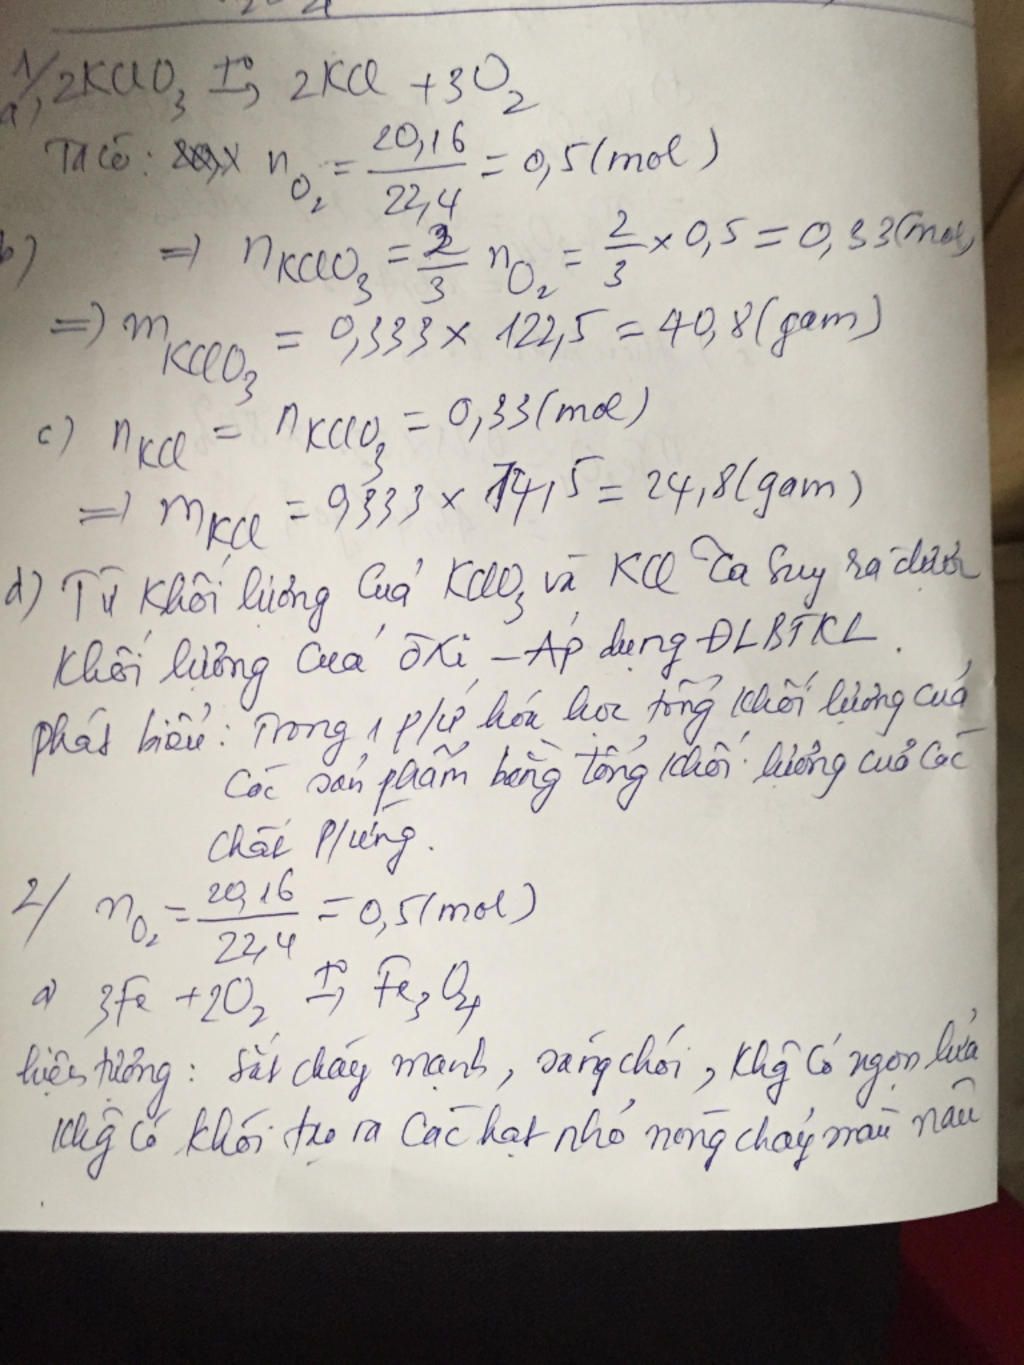 1/
a, 2KClO3 t°→ 2KCl + 3O2
Ta có: nO2 = 20,16/22,4 = 0,5 (mol)
b) => nKClO3 = 2/3 nO2 = 2/3 × 0,5 = 0,33 (mol)
=> mKClO3 = 0,333 × 122,5 = 40,8 (gam)
c) nKCl = nKClO3 = 0,33 (mol)
=> mKCl = 0,333 × 74,5 = 24,8 (gam)
d) Từ khối lượng của KClO3 và KCl Ta suy ra được
khối lượng của ôxi - Áp dụng ĐLBTKL.
phát biểu: Trong 1 p/ứ hóa học tổng khối lượng của
các sản phẩm bằng tổng khối lượng của các
chất p/ứng.
2/ nO2 = 20,16/22,4 = 0,5 (mol)
a) 3Fe + 2O2 t°→ Fe3O4
hiện tượng: Sắt cháy mạnh, sáng chói, khg có ngọn lửa
khg có khói tạo ra các hạt nhỏ nóng chảy màu nâu